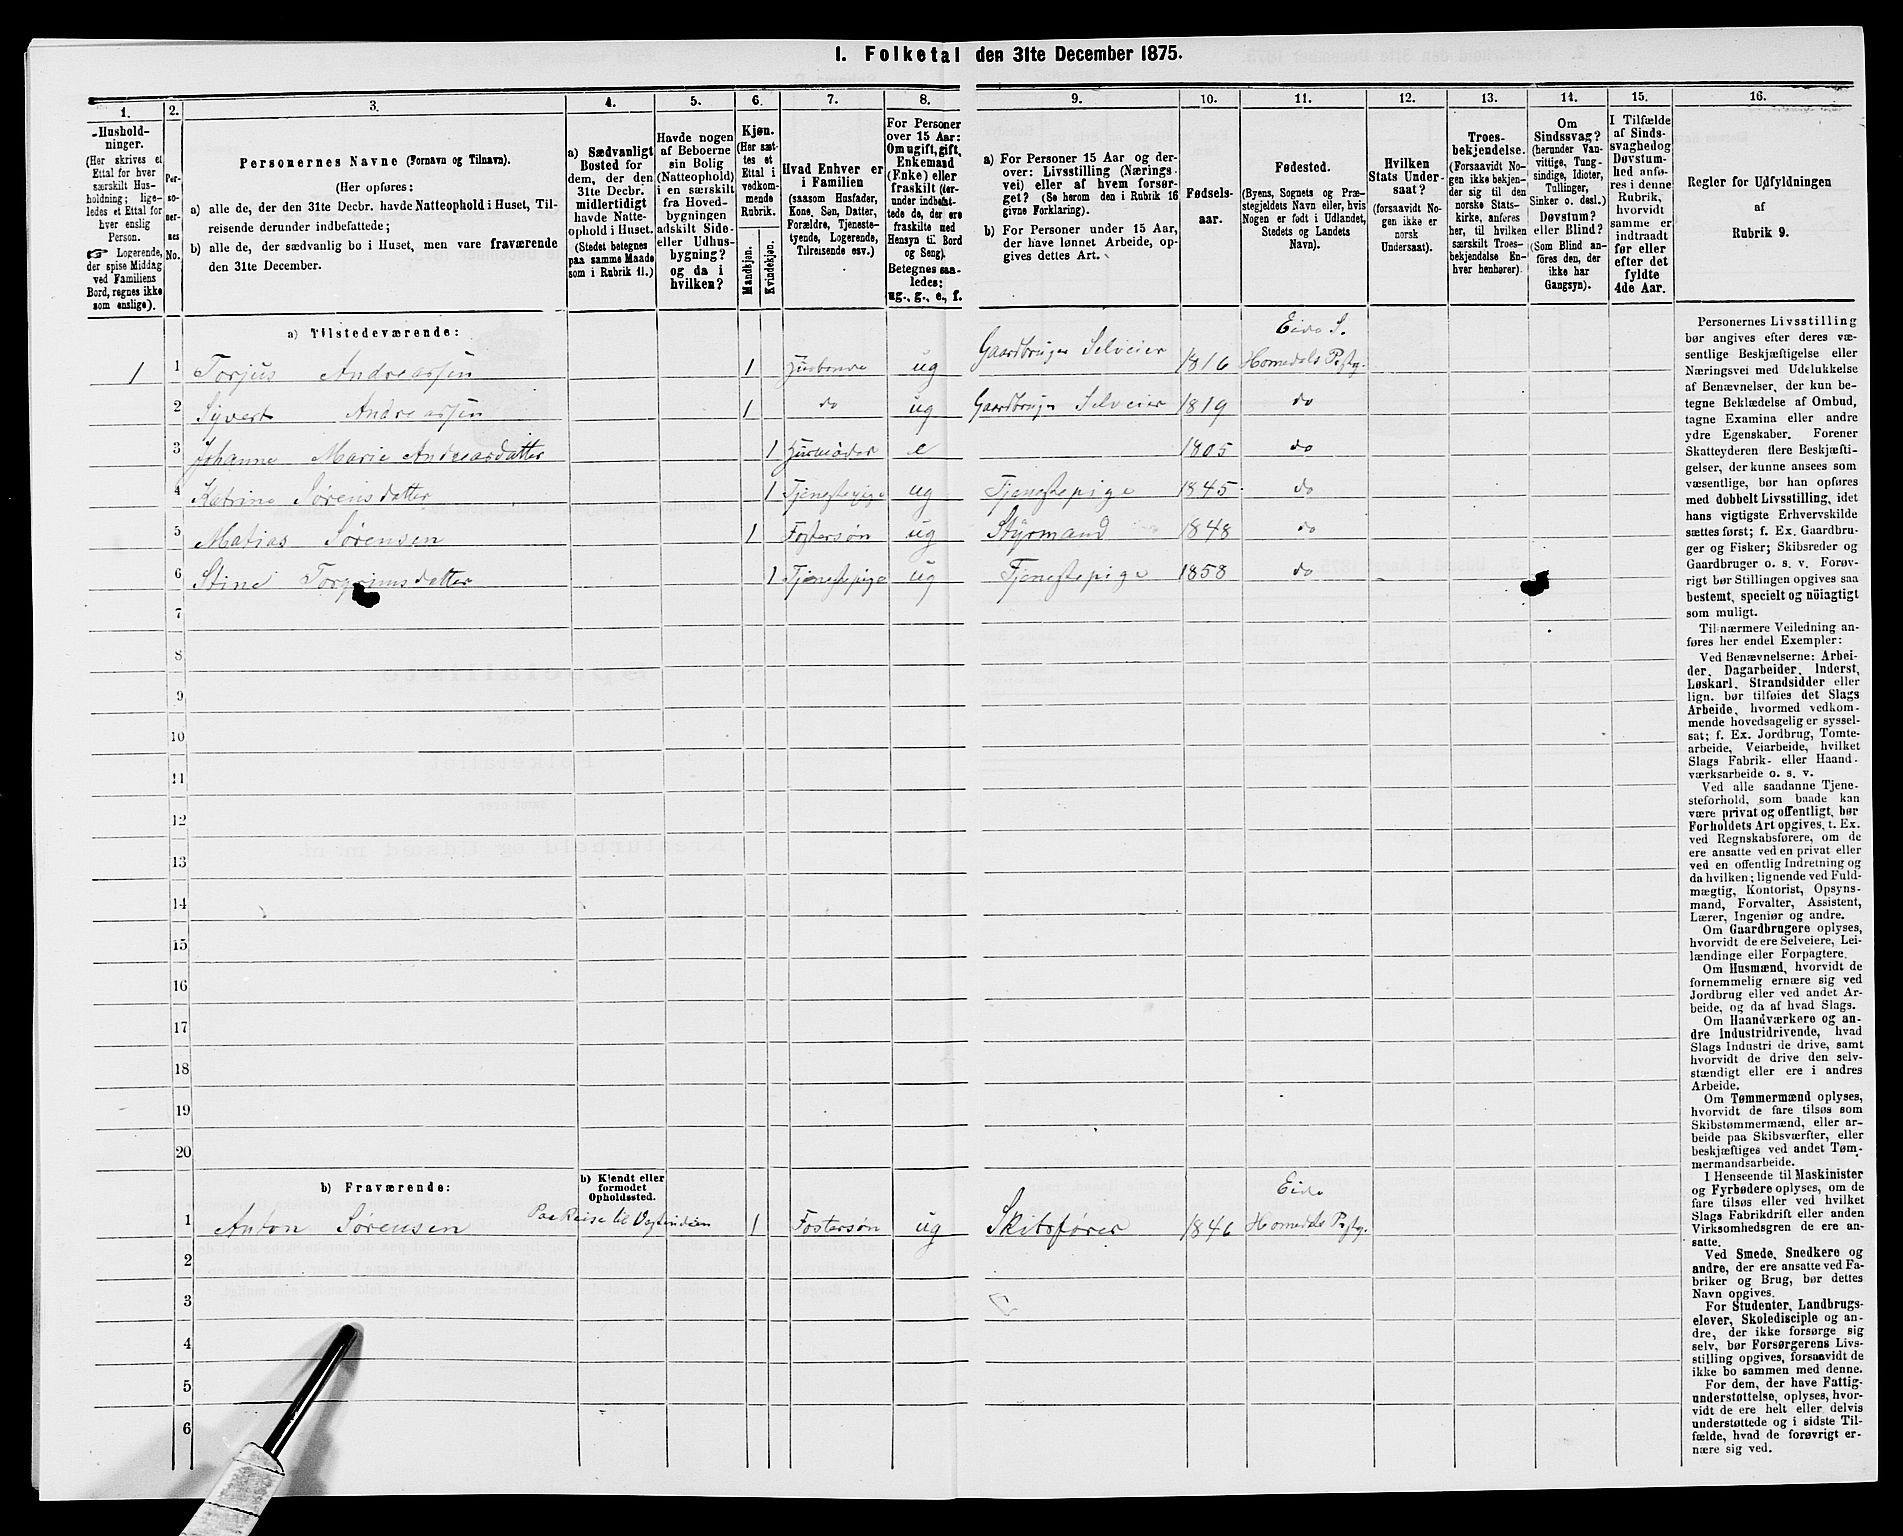 1. Folketal den 31te December 1875.
1.
Hushold-
ninger.
(Her skrives et
Ettal for hver
særskilt Hus-
holdning; lige-
ledes et Ettal for
hver enslig
Person.
☞ Logerende,
der spise Middag
ved Familiens
Bord, regnes ikke
som enslige).
2.
Per-
so-
ner-
nes
No.
3.
Personernes Navne (Fornavn og Tilnavn).
(Her opføres:
a) alle de, der den 31te Decbr. havde Natteophold i Huset, Til-
reisende derunder indbefattede;
b) alle de, der sædvanlig bo i Huset, men vare fraværende
den 31te December.
4.
a) Sædvanligt
Bosted for
dem, der den
31te Decbr.
midlertidigt
havde Natte-
ophold i Huset.
(Stedet betegnes
paa samme Maade
som i Rubrik 11.)
5.
Havde nogen
af Beboerne
sin Bolig
(Natteophold)
i en særskilt
fra Hoved-
bygningen
adskilt Side-
eller Udhus-
bygning?
og da i
hvilken?
6.
Kjøn.
(Her sæt-
tes et
Ettal i
vedkom-
mende
Rubrik.
Mandkjøn.
Kvindekjøn.
7.
Hvad Enhver er
i Familien
(saasom Husfader,
Kone, Søn, Datter,
Forældre, Tjeneste-
tyende, Logerende,
Tilreisende osv.)
8.
For Personer
over 15 Aar:
Om ugift, gift,
Enkemand
(Enke) eller
fraskilt (her-
under indbefat-
tede de, der ere
fraskilte med
Hensyn til Bord
og Seng).
Betegnes saa-
ledes:
ug., g., e., f.
9.
a) For Personer 15 Aar og der-
over: Livsstilling (Nærings-
vei) eller af hvem forsør-
get? (Se herom den i Rubrik 16
givne Forklaring).
b) For Personer under 15 Aar,
der have lønnet Arbeide, op-
gives dettes Art.
10.
Fødsels-
aar.
11.
Fødested.
(Byens, Sognets og Præ-
stegjeldets Navn eller, hvis
Nogen er født i Udlandet,
Stedets og Landets
Navn).
12.
Hvilken
Stats Under-
saat?
(forsaavidt No-
gen ikke er
norsk
Undersaat).
13.
Troes-
bekjendelse.
(Forsaavidt No-
gen ikke bekjen-
der sig til den
norske Stats-
kirke, anføres
her, til hvilken
særskilt Troes-
bekjendelse En-
hver henhører).
14.
Om
Sindssvag?
(herunder Van-
vittige, Tung-
sindige, Idioter,
Tullinger,
Sinker o. desl.)
Døvstum?
eller Blind?
(Som Blind an-
føres den, der
ikke har
Gangsyn).
15.
I Tilfælde
af Sinds-
svaghed og
Døvstum-
hed anfø-
res i denne
Rubrik,
hvorvidt
samme er
indtraadt
før eller
efter det
fyldte
4de Aar.
16.
Regler for Udfyldningen
af
Rubrik 9.
a) Tilstedeværende:
Eide S.
1 1 Torjus Andreassen 1 Husbonde ug Gaardbruger Selveier 1816 Homedals Pstg.
2 Syvert Andreassen 1 do ug Gaardbruger Selveier 1819 do
3 Johanne Marie Andreasdatter 1 Husmoder e 1805 do
4 Katrine Sørensdatter 1 Tjenestepige ug Tjenestepige 1845 do
5 Matias Sørensen 1 Fostersøn ug Styrmand 1848 do
6 Stine Torgrimsdatter 1 Tjenestepige ug Tjenestepige 1858 do
7
8
9
10
11
12
13
14
15
16
17
18
19
20
b) Fraværende:
b) Kjendt eller
formodet
Opholdssted.
Eide
1 Anton Sørensen Paa Reise til Vestindien 1 Fostersøn ug Skibsfører 1846 Homedals Pstg.
2
3
4
5
6
Personernes Livsstilling
bør angives efter deres væ-
sentlige Beskjæftigelse eller
Næringsvei med Udelukkelse
af Benævnelser, der kun be-
tegne Beklædelse af Ombud,
tagne Examina eller andre
ydre Egenskaber. Forener
Skatteyderen flere Beskjæfti-
gelser, der kunne ansees som
væsentlige, bør han opføres
med dobbelt Livsstilling, idet
hans vigtigste Erhvervskilde
sættes først; f. Ex. Gaardbru-
ger og Fisker; Skibsreder og
Gaardbruger o. s. v. Forøv-
rigt bør Stillingen opgives saa
bestemt, specielt og nöiagtigt
som muligt.
Til nærmere Veiledning an-
føres her endel Exempler:
Ved Benævnelserne: Arbei-
der, Dagarbeider, Inderst,
Løskarl, Strandsidder eller
lign. bør tilføies det Slags
Arbeide, hvormed vedkom-
mende hovedsagelig er syssel-
sat; f. Ex. Jordbrug, Tomte-
arbeide, Veiarbeide, hvilket
Slags Fabrik- eller Haand-
værksarbeide o. s. v.
Ved alle saadanne Tjene-
steforhold, som baade kan
være privat og offentligt, bør
Forholdets Art opgives, t. Ex.
ved Regnskabsførere, om de
ere ansatte ved en privat eller
ved en offentlig Indretning og
da hvilken; lignende ved Fuld-
mægtig, Kontorist, Opsyns-
mand, Forvalter, Assistent,
Lærer, Ingeniør og andre.
Om Gaardbrugere oplyses,
hvorvidt de ere Selveiere, Lei-
lændinge eller Forpagtere.
Om Husmænd, hvorvidt de
fornemmelig ernære sig ved
Jordbrug eller ved andet Ar-
beide, og da af hvad Slags.
Om Haandværkere og an-
dre Industridrivende, hvad
Slags Industri de drive, samt
hvorvidt de drive den selv-
stændigt eller ere i andres
Arbeide.
Om Tømmermænd oplyses,
hvorvidt de fare tilsøs som
Skibstømmermænd, eller ar-
beide paa Skibsværfter, eller
beskjæftiges ved andet Tøm-
mermandsarbeide.
I Henseende til Maskinister
og Fyrbødere oplyses, om de
fare tilsøs eller ved hvilket
Slags Fabrikdrift eller anden
Virksomhedsgren de ere an-
satte.
Ved Smede, Snedkere og
andre, der ere ansatte ved Fa-
briker og Brug, bør dettes
Navn opgives.
For Studenter, Landbrugs-
elever, Skoledisciple og an-
dre, der ikke forsørge sig
selv, bør Forsørgerens Livs-
stilling opgives, forsaavidt de
ikke bo sammen med denne.
For dem, der have Fattig-
understøttelse, oplyses, hvor-
vidt de ere helt eller delvis
understøttede og i sidste Til-
fælde, hvad de forøvrigt er-
nære sig ved.